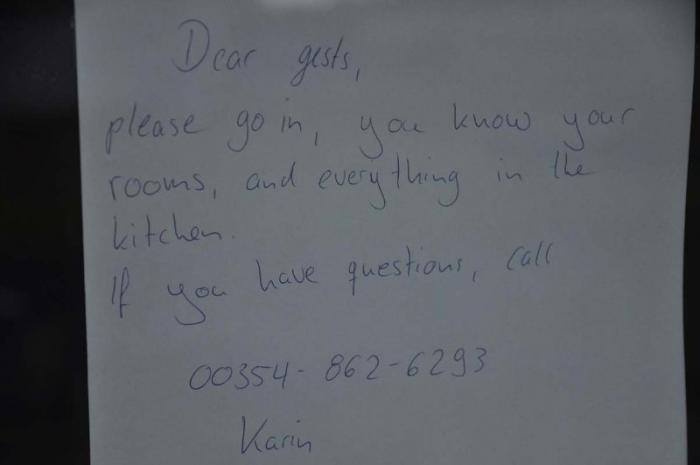 Dear gests,
please go in, you know your
rooms, and everything in the
kitchen.
If you have questions, call
00354-862-6293
Karin